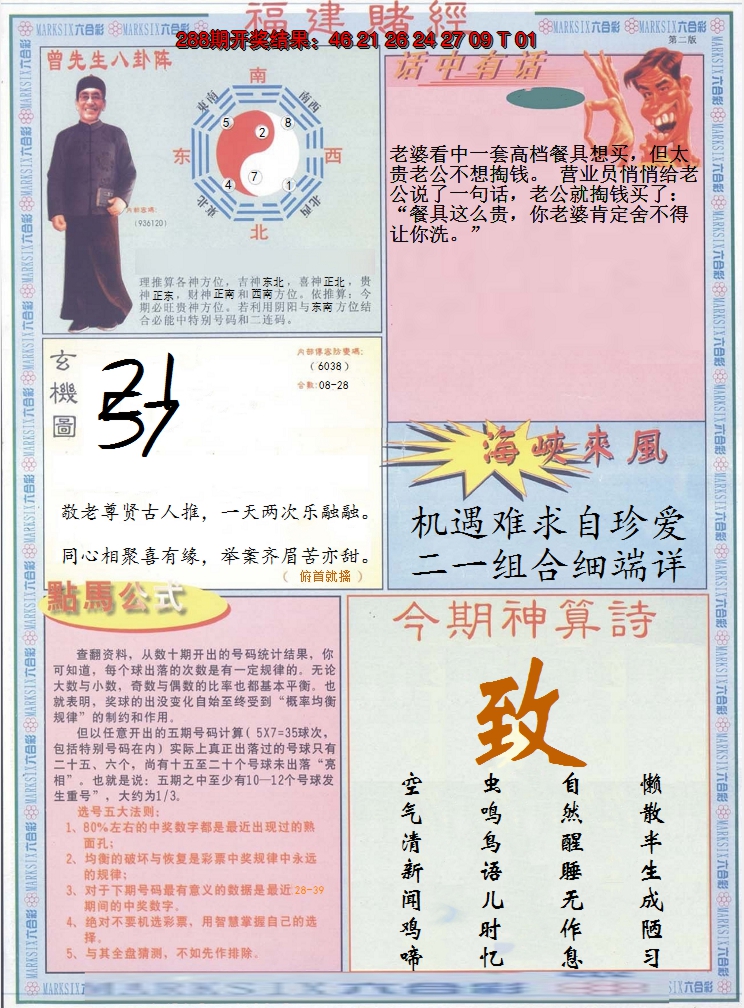 福建賭經
288期开奖结果：46 21 26 24 27 09 T 01
第二版
MARKSIX六合彩
曾先生八卦阵
南
东南
西南
5
2
8
东
西
4
7
1
东北
西北
北
内部密碼:
（936120）
理推算各神方位，吉神东北，喜神正北，贵
神正东，财神正南和西南方位。依推算：今
期必旺贵神方位。若利用阴阳与东南方位结
合必能中特别号码和二连码。
话中有话
老婆看中一套高档餐具想买，但太
贵老公不想掏钱。 营业员悄悄给老
公说了一句话，老公就掏钱买了：
“餐具这么贵，你老婆肯定舍不得
让你洗。”
玄機圖
内部傳密防變碼:
（6038）
合数:08-28
敬老尊贤古人推，一天两次乐融融。
同心相聚喜有缘，举案齐眉苦亦甜。
（ 俯首就擒 ）
海峽來風
机遇难求自珍爱
二一组合细端详
點馬公式
查翻资料，从数十期开出的号码统计结果，你
可知道，每个球出落的次数是有一定规律的。无论
大数与小数，奇数与偶数的比率也都基本平衡。也
就表明，奖球的出没变化自始至终受到“概率均衡
规律”的制约和作用。
但以任意开出的五期号码计算( 5X7=35球次，
包括特别号码在内) 实际上真正出落过的号球只有
二十五、六个，尚有十五至二十个号球未出落“亮
相”。也就是说：五期之中至少有10—12个号球发
生重号”，大约为1/3。
选号五大法则：
1、80%左右的中奖数字都是最近出现过的熟
面孔；
2、均衡的破坏与恢复是彩票中奖规律中永远
的规律；
3、对于下期号码最有意义的数据是最近28-39
期间的中奖数字。
4、绝对不要机选彩票，用智慧掌握自己的选
择。
5、与其全盘猜测，不如先作排除。
今期神算詩
致
懒散半生成陋习
自然醒睡无作息
虫鸣鸟语儿时忆
空气清新闻鸡啼